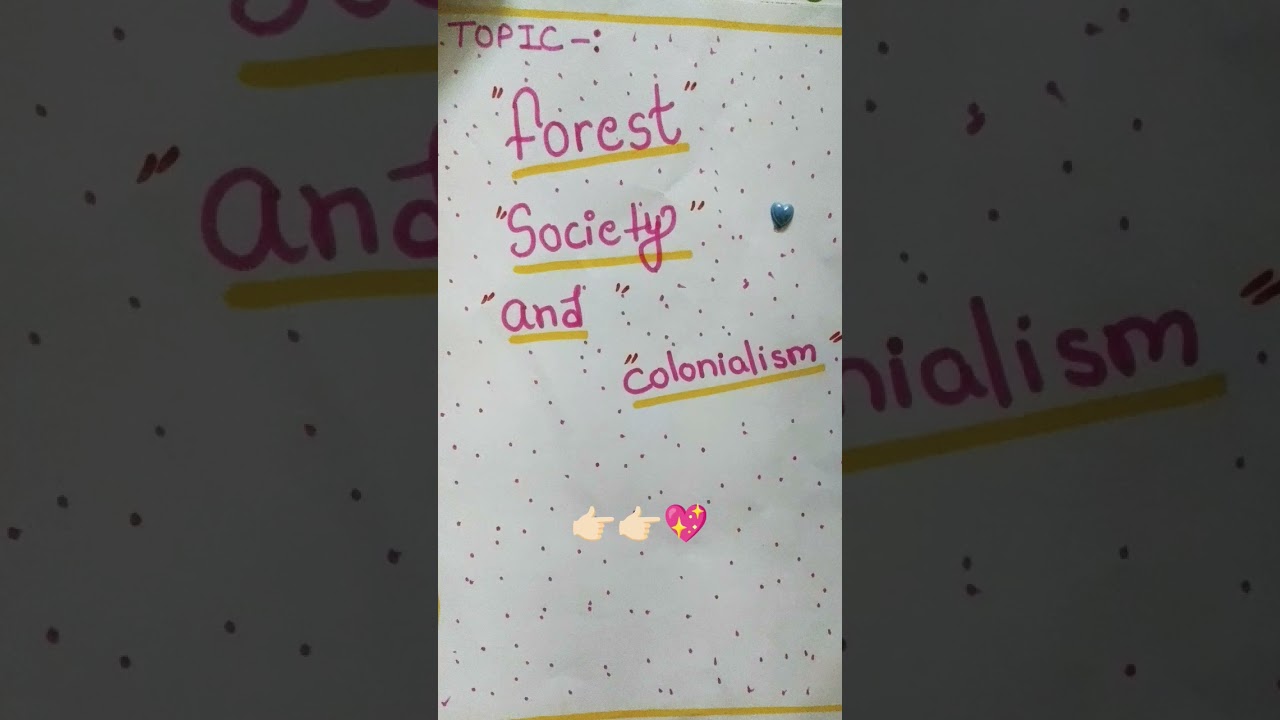 TOPIC-:
"forest"
"Society"
"and"
"colonialism"